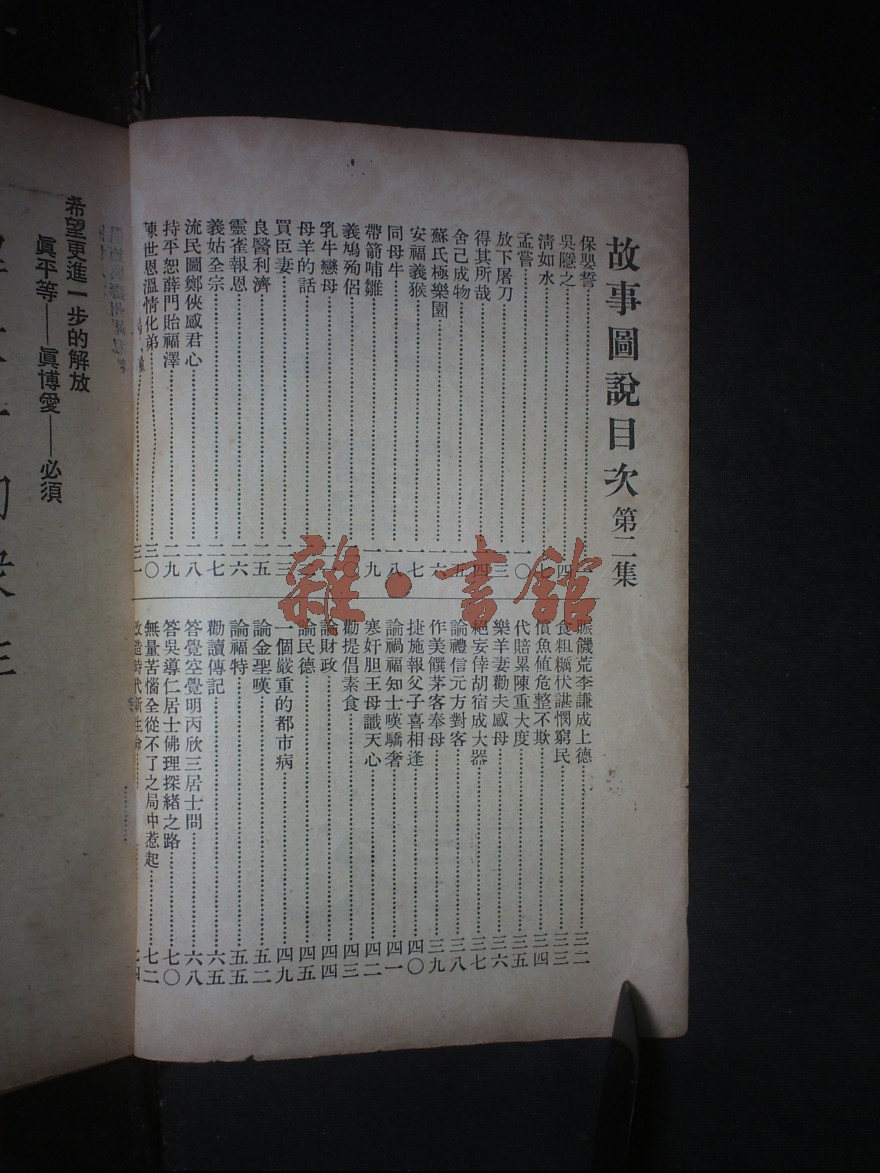 故事圖說目次 第二集
保嬰誓
吳隱之 四
清如水 七
孟嘗 一〇
放下屠刀 三
得其所哉 四
舍己成物 一五
蘇氏極樂園 一六
安福義猴 一七
同母牛 一八
帶箭哺雛 一九
義鳩殉侶
乳牛戀母
母羊的話
買臣妻 二三
良醫利濟 二五
靈雀報恩 二六
義姑全宗 二七
流民圖鄭俠感君心 二八
持平恕薛門貽福澤 二九
陳世恩溫情化弟 三〇
三一
賑饑荒李謙成上德 三二
食粗糲伏諶憫窮民 三三
償魚値危整不欺 三四
代賠累陳重大度 三五
樂羊妻勸夫感母 三六
絕妄倖胡宿成大器 三七
論禮信元方對客 三八
作美饌茅客奉母 三九
捷施報父子喜相逢 四〇
論禍福知士嘆驕奢 四一
寒奸胆王母識天心 四二
勸提倡素食 四三
論財政 四四
論民德 四五
一個嚴重的都市病 四九
論金聖嘆 五二
論福特 五五
勸讀傳記 六五
答覺空覺明丙欣三居士問 六八
答吳導仁居士佛理探緒之路 七〇
無量苦惱全從不了之局中惹起 七二
改造時代新生命 七四
希望更進一步的解放
眞平等——眞博愛——必須
雜·書館